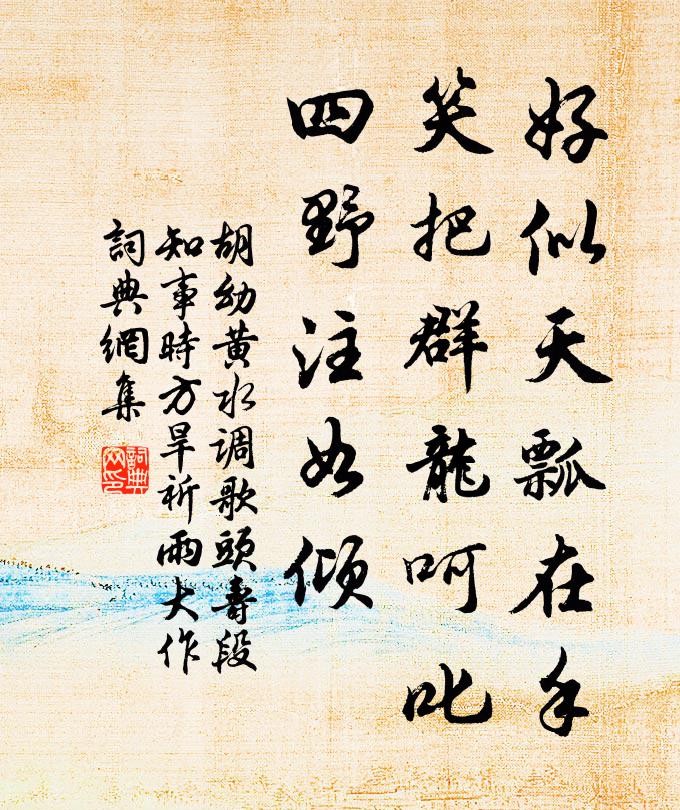 好似天瓢在手
笑把群龍呵叱
四野注如傾
胡幼黄水调歌頭壽段
知事時方旱祈雨大作
詞典網集
詞典
网印